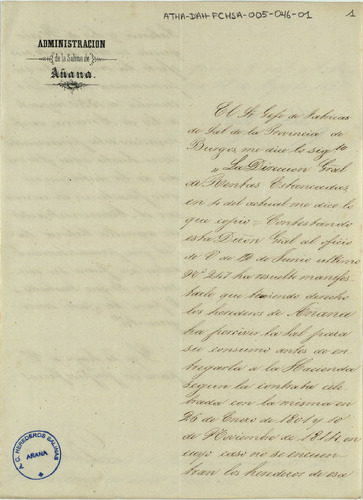 ATHA-DAH-FCHSA-005-046-01
1
ADMINISTRACION
de la Salina de
Añana.
El Sr Gefe de Fabricas
de Sal de la Provincia de
Burgos, me dice lo sigte
"La Direccion Gral
de Rentas Estancadas
en 4 del actual me dice lo
que copio = Contestando
esta Dción Gral al oficio
de V de 12 de Junio ultimo
nº 247 ha resuelto manifes-
tarle que teniendo derecho
los herederos de Añana
ha percivir la sal para
su consumo antes de en-
tregarla a la Hacienda
segun la contrata cele-
brada con la misma en
26 de Enero de 1801 y 10
de Noviembre de 1814, en
cuyo caso no se encuen-
tran los herederos de esa
C. HEREDEROS SALINAS
AÑANA